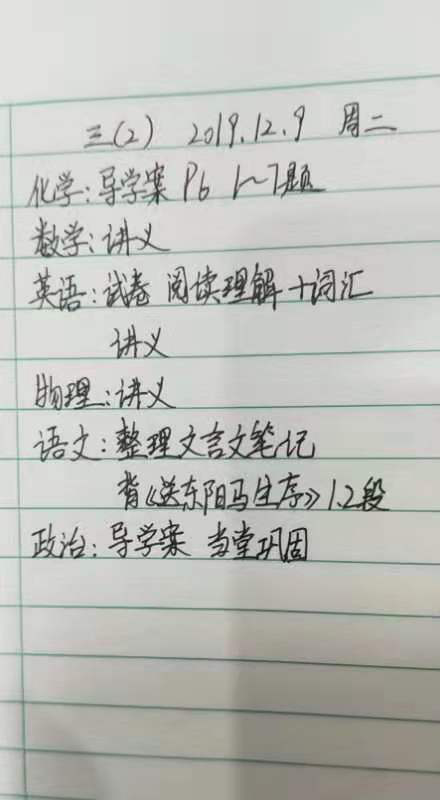 三(2) 2019.12.9 周二
化学:导学案 P6 1~7题
数学:讲义
英语:试卷 阅读理解+词汇
讲义
物理:讲义
语文:整理文言文笔记
背《送东阳马生序》1.2段
政治:导学案 当堂巩固